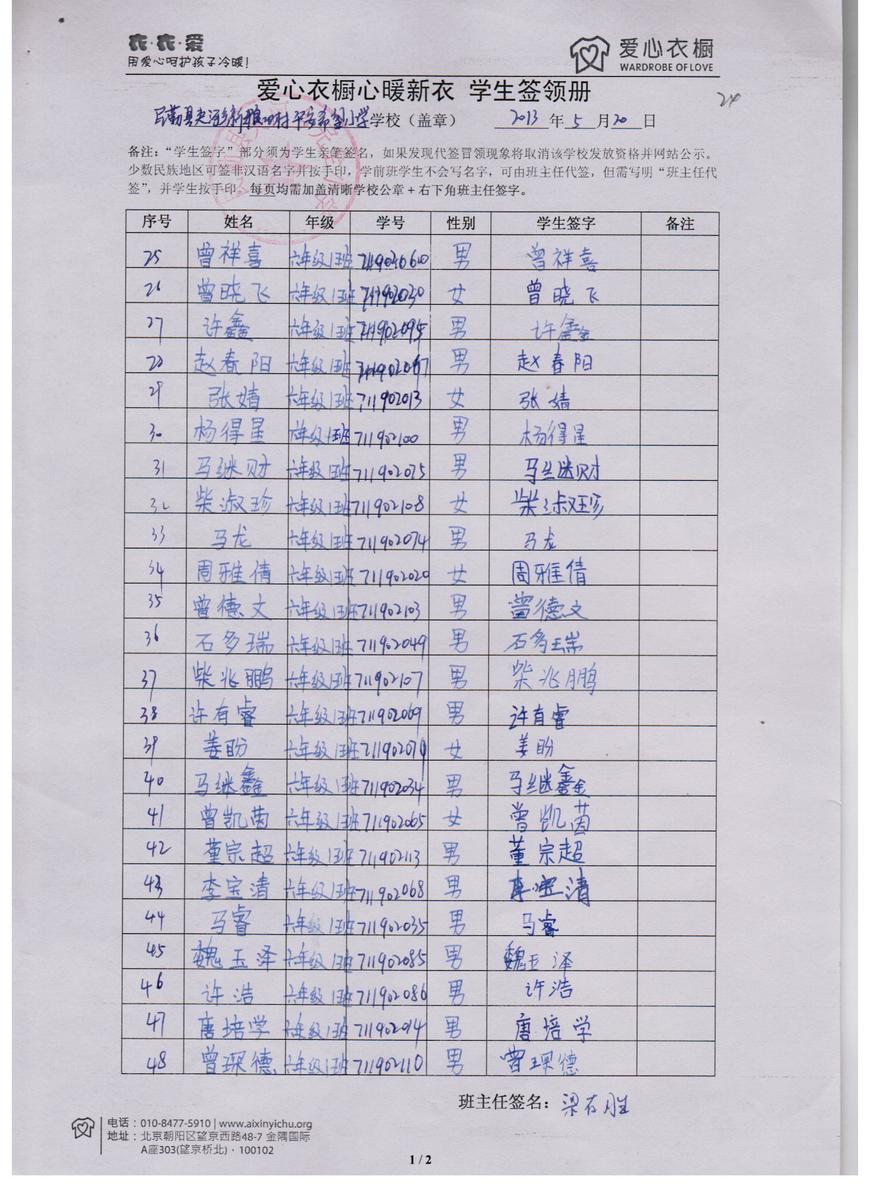 衣·衣·爱
用爱心呵护孩子冷暖!
爱心衣橱
WARDROBE OF LOVE
爱心衣橱心暖新衣 学生签领册
24
民勤县 小学学校（盖章） 2013 年 5 月 20 日
备注：“学生签字”部分须为学生亲笔签名，如果发现代签冒领现象将取消该学校发放资格并网站公示。
少数民族地区可签非汉语名字并按手印，学前班学生不会写名字，可由班主任代签，但需写明“班主任代
签”，并学生按手印。每页均需加盖清晰学校公章＋右下角班主任签字。
序号 姓名 年级 学号 性别 学生签字 备注
25 曾祥喜 六年级1班 男 曾祥喜
26 曾晓飞 六年级1班 711902030 女 曾晓飞
27 许鑫 六年级1班 711902095 男 许鑫
28 赵春阳 六年级1班 711902067 男 赵春阳
29 张婧 六年级1班 711902013 女 张婧
30 杨得星 六年级1班 711902100 男 杨得星
31 马继财 六年级1班 711902075 男 马继财
32 柴淑珍 六年级1班 711902108 女 柴淑珍
33 马龙 六年级1班 711902074 男 马龙
34 周雅倩 六年级1班 711902020 女 周雅倩
35 曾德文 六年级1班 711902103 男 曾德文
36 石多瑞 六年级1班 711902049 男 石多瑞
37 柴兆鹏 六年级1班 711902107 男 柴兆鹏
38 许有睿 六年级1班 711902069 男 许有睿
39 姜盼 六年级1班 女 姜盼
40 马继鑫 六年级1班 711902034 男 马继鑫
41 曾凯茵 六年级1班 711902065 女 曾凯茵
42 董宗超 六年级1班 711902113 男 董宗超
43 李宝清 六年级1班 711902068 男 李宝清
44 马睿 六年级1班 711902035 男 马睿
45 魏玉泽 六年级1班 711902085 男 魏玉泽
46 许浩 六年级1班 711902086 男 许浩
47 唐培学 六年级1班 711902014 男 唐培学
48 曾琛德 六年级1班 711902110 男 曾琛德
班主任签名：梁有胜
电话：010-8477-5910 | www.aixinyichu.org
地址：北京朝阳区望京西路48-7 金隅国际
A座303(望京桥北)·100102
1 / 2